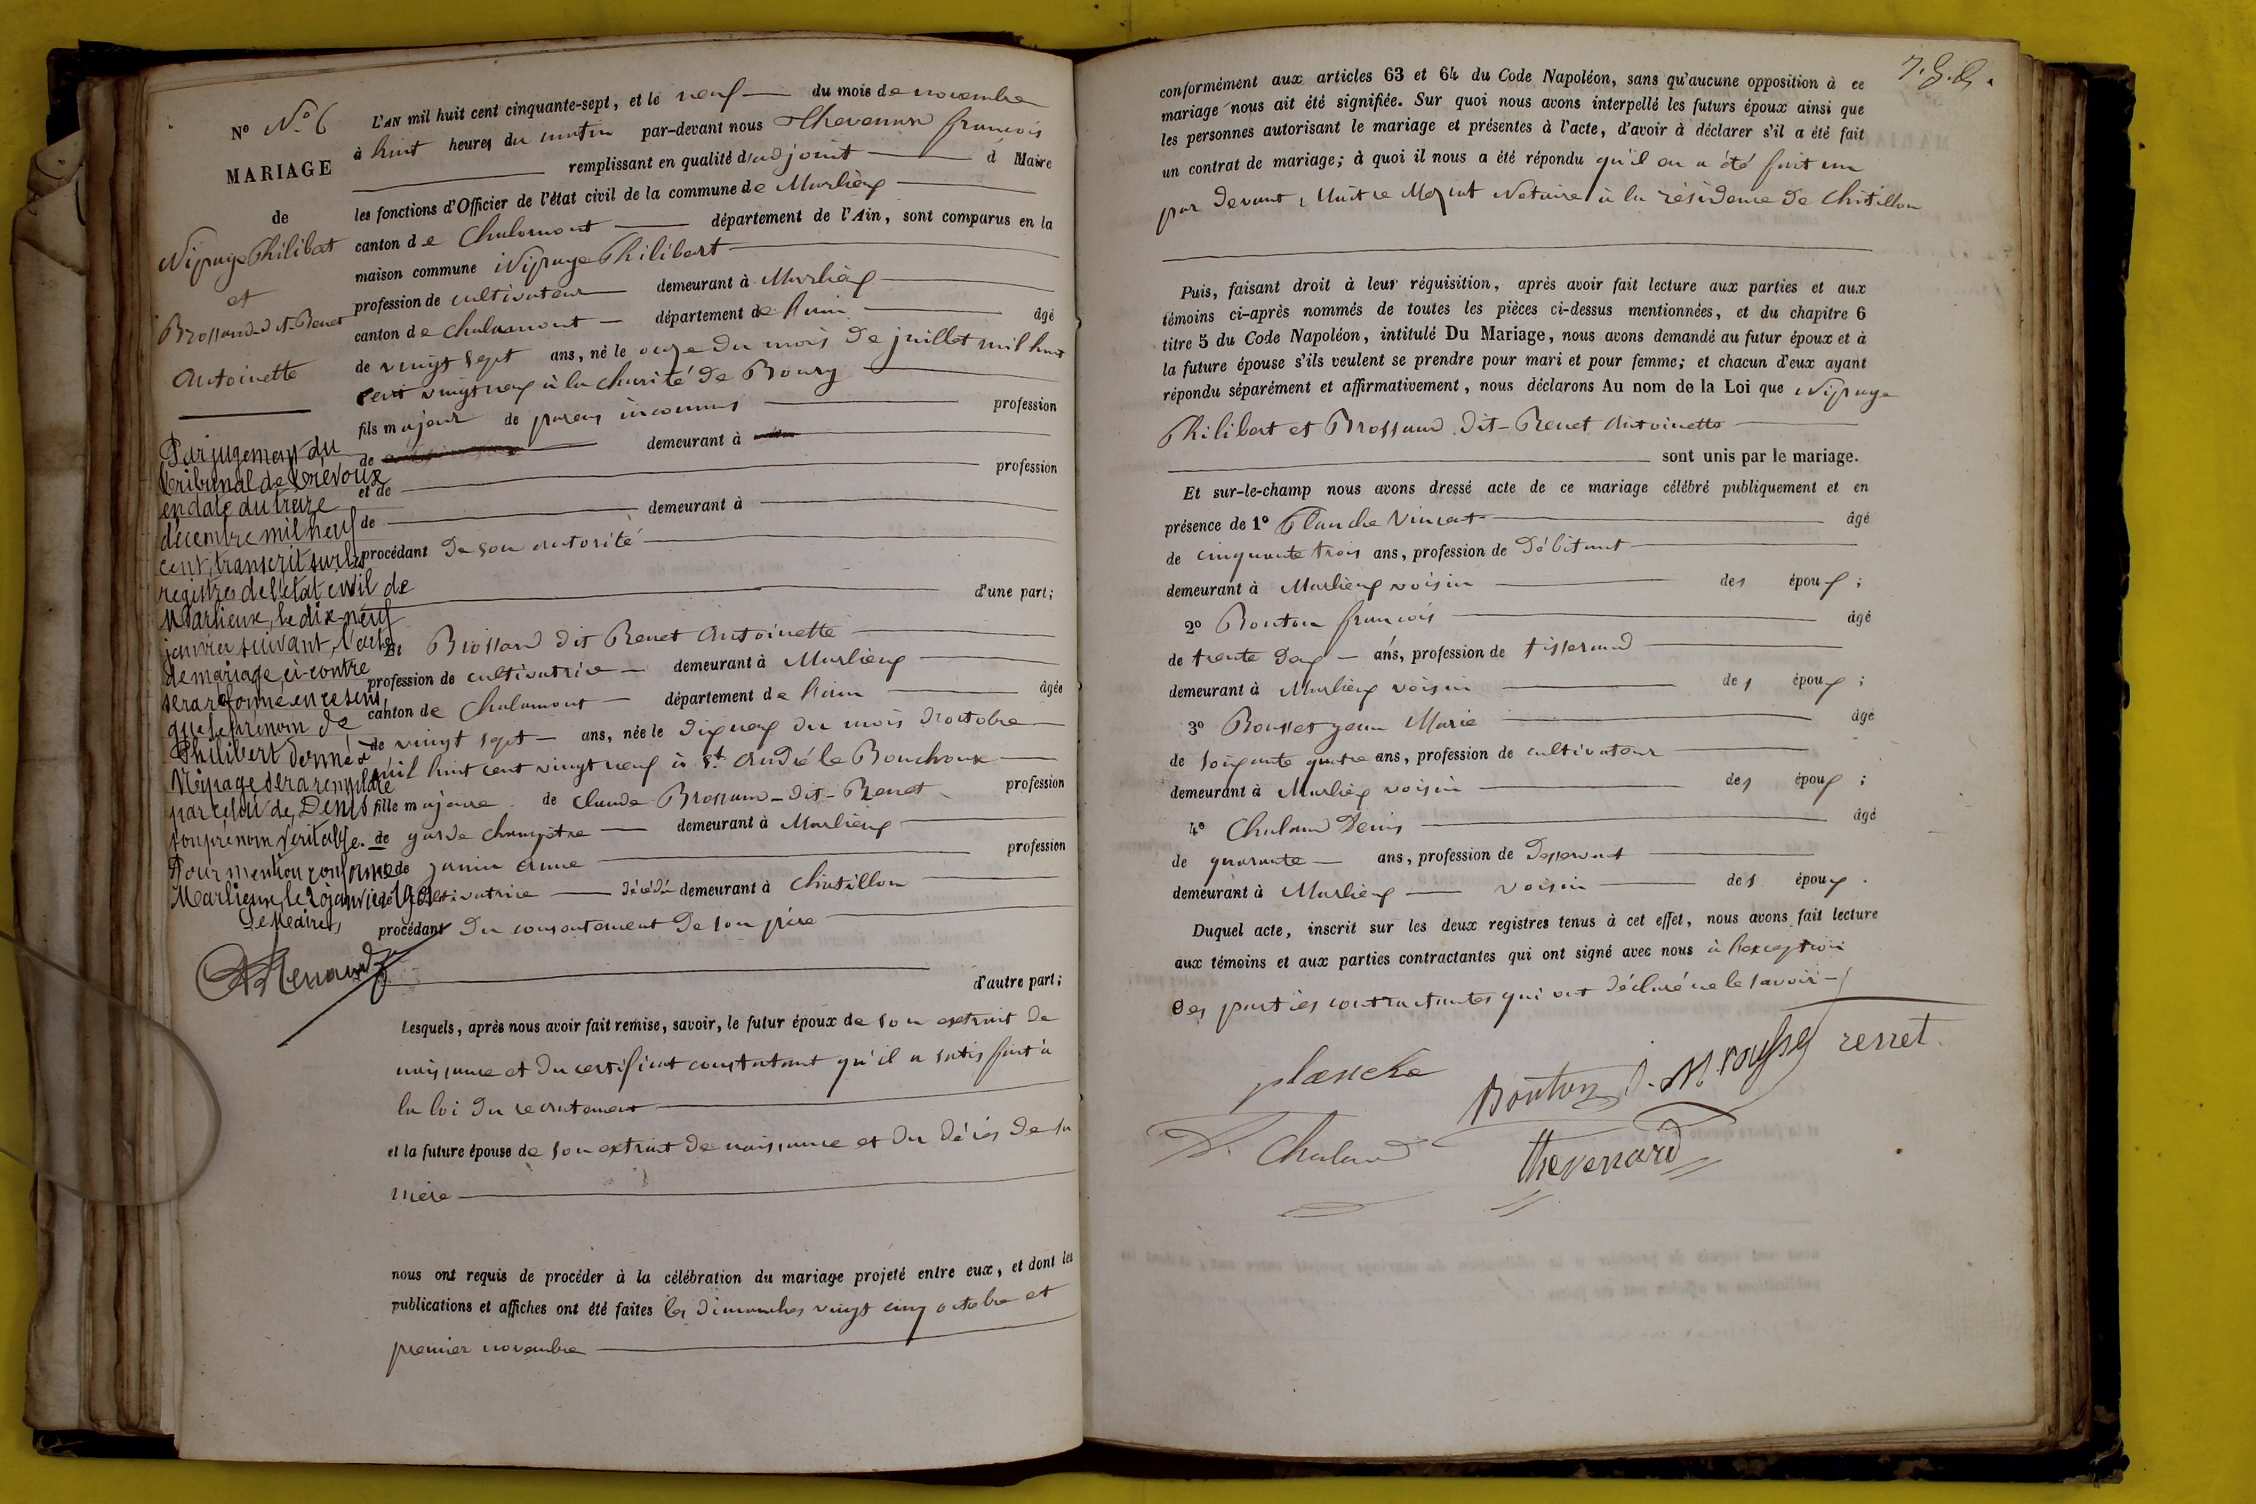 N° N.° 6
MARIAGE
de
Nipage Philibert
et
Brossand-dit-Benet
Antoinette
Par jugement du
tribunal de Trévoux
en date du treize
décembre mil neuf
cent, transcrit sur les
registres de l'état civil de
Marlieux, le dix-neuf
janvier suivant, l'acte
de mariage ci-contre
sera réformé en ce sens
que le prénom de
Philibert donné à
Nipage sera remplacé
par celui de Denis
son prénom véritable.
Pour mention conforme
Marlieux, le 20 janvier 1901
Le Maire,
L'AN mil huit cent cinquante-sept, et le neuf du mois de novembre
à huit heures du matin par-devant nous Thevenard françois
remplissant en qualité d'adjoint d Maire
les fonctions d'Officier de l'état civil de la commune de Marlieux
canton de Chalamont département de l'Ain, sont comparus en la
maison commune Nipage Philibert
profession de cultivateur demeurant à Marlieux
canton de Chalamont département de l'ain âgé
de vingt sept ans, né le onze du mois de juillet mil huit
cent vingt neuf à la charité de Bourg
fils majeur de parens inconnus profession
de demeurant à
et de profession
de demeurant à
procédant de son autorité
d'une part;
Et Brossand dit Benet Antoinette
profession de cultivatrice demeurant à Marlieux
canton de Chalamont département de l'ain âgée
de vingt sept ans, née le dix neuf du mois d'octobre
mil huit cent vingt neuf à St André le Bouchoux
fille majeure de Claude Brossand-dit-Benet profession
de garde champêtre demeurant à Marlieux
et de janin anne profession
de cultivatrice décédé demeurant à Chatillon
procédant du consentement de son père
d'autre part;
Lesquels, après nous avoir fait remise, savoir, le futur époux de son extrait de
naissance et du certificat constatant qu'il a satisfait à
la loi du recrutement
et la future épouse de son extrait de naissance et du décès de sa
mère
nous ont requis de procéder à la célébration du mariage projeté entre eux, et dont les
publications et affiches ont été faites les dimanches vingt cinq octobre et
premier novembre
conformément aux articles 63 et 64 du Code Napoléon, sans qu'aucune opposition à ce
mariage nous ait été signifiée. Sur quoi nous avons interpellé les futurs époux ainsi que
les personnes autorisant le mariage et présentes à l'acte, d'avoir à déclarer s'il a été fait
un contrat de mariage; à quoi il nous a été répondu qu'il en a été fait un
par devant, Maître Notaire à la résidence de Chatillon
Puis, faisant droit à leur réquisition, après avoir fait lecture aux parties et aux
témoins ci-après nommés de toutes les pièces ci-dessus mentionnées, et du chapitre 6
titre 5 du Code Napoléon, intitulé Du Mariage, nous avons demandé au futur époux et à
la future épouse s'ils veulent se prendre pour mari et pour femme; et chacun d'eux ayant
répondu séparément et affirmativement, nous déclarons Au nom de la Loi que Nipage
Philibert et Brossand-dit-Benet Antoinette
sont unis par le mariage.
Et sur-le-champ nous avons dressé acte de ce mariage célébré publiquement et en
présence de 1° Planche Vincent âgé
de cinquante trois ans, profession de Débitant
demeurant à Marlieux voisin des époux;
2° Bouton françois âgé
de trente deux ans, profession de tisserand
demeurant à Marlieux voisin des époux;
3° Rousset jean Marie âgé
de soixante quatre ans, profession de cultivateur
demeurant à Marlieux voisin des époux;
4° Chaland Denis âgé
de quarante ans, profession de Desservant
demeurant à Marlieux voisin des époux.
Duquel acte, inscrit sur les deux registres tenus à cet effet, nous avons fait lecture
aux témoins et aux parties contractantes qui ont signé avec nous à l'exception
des parties contractantes qui ont déclaré ne le savoir
planche Bouton J. M. rousset
D. Chaland Thevenard